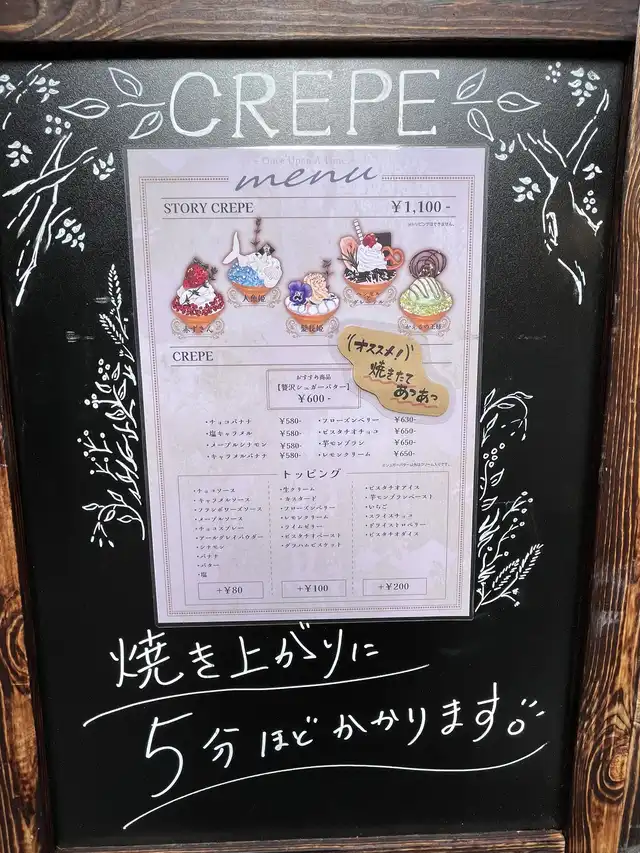 CREPE
Once Upon A Time
menu
STORY CREPE ¥1,100-
※トッピングはできません。
赤ずきん
人魚姫
親指姫
かえるの王様
CREPE
(オススメ!)
焼きたて
あつあつ
おすすめ商品
【贅沢シュガーバター】
¥600-
・チョコバナナ ¥580-
・塩キャラメル ¥580-
・メープルシナモン ¥580-
・キャラメルバナナ ¥580-
・フローズンベリー ¥630-
・ピスタチオチョコ ¥650-
・芋モンブラン ¥650-
・レモンクリーム ¥650-
トッピング
・チョコソース
・キャラメルソース
・フランボワーズソース
・メープルソース
・チョコスプレー
・アールグレイパウダー
・シナモン
・バナナ
・バター
・塩
+¥80
・生クリーム
・カスタード
・フローズンベリー
・レモンクリーム
・ライムゼリー
・ピスタチオペースト
・グラハムビスケット
+¥100
・ピスタチオアイス
・芋モンブランペースト
・いちご
・スライスチョコ
・ドライストロベリー
・ピスタチオダイス
+¥200
焼き上がりに
5分ほどかかります。